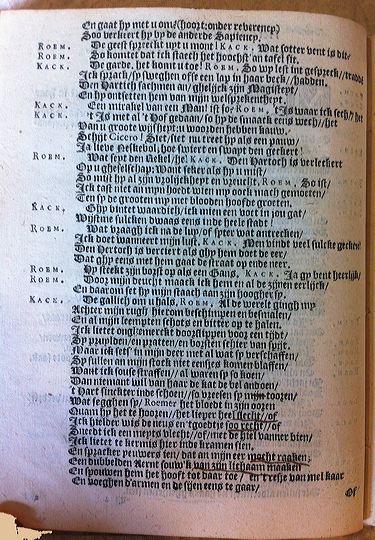 En gaat hy met u ons (hoort: onder reverency)
Soo verkeert hy by de anderde Sapiency.
ROEM. De geest spreeckt upt u mont! KACK. Wat sotter vent is dit/
ROEM. So komtet dat ick staech het hoochst' an tafel sit.
KACK. De garde, het komt toe! ROEM. So wy lest int gespreck/
Ick sprack/ sp sweghen offe een lap in haar beck/ hadden.
Den Hartich sachmen an/ ghelijck zijn Magistept/
En hy ontsetten hem van mijn welsprekentheyt.
KACK. Een mirakel van een Man! ist so/ ROEM. t'Is waar ick seth/
KACK. 't Is met al 't Hof gedaan/ so hy de smaack eens weeth/ het
Van u groote wijsheyt u woorden hebben kauw.
Schijt Cicero! Siet/ siet nu treet hy als een pauw/
Ja lieve Neskebol, hoe swiert en swapt den geckert!
ROEM. Wat sept den Rekel/ he! KACK. Den Hartoch is verleckert
Op u gheselschap: Want seker als hy u mist/
So mist hy al zijn vrolijckheyt en vreucht. ROEM. So ist/
Ick tast niet an mijn hoedt wien my oock mach gemoeten/
Ten sy de grooten my met blooden hoofde groeten.
KACK. Ghy bint waardich/ ick mien een voet in jou gat/
Wijstme sulcken dwaas eens inde heele stadt!
ROEM. Wat vraagh ick na de luy/ of sper wat antrecken/
Ick doet wanneert mijn lust. KACK. Men vindt veel sulcke gecken!
Den Hertoch is vertiert als ghy hem doet de eer/
Dat ghy eens met hem gaat de straat op ende neer.
ROEM. Hy steeckt zijn borst op als een Gans. KACK. Ja gy bent heerlijck/
ROEM. Door mijn deucht maack ick hem en al de zijnen eerlijck/
En daarom set hy mijn staach aan zijn hoogher sy.
KACK. De gallich om u hals, ROEM. Al de werelt gingh my
Achter mijn rugh' hierom beschimpen en besmalen/
En al mijn leempten schots en bitter op te halen.
Ick lietet ongheemerckt doorslippen voor een tijdt/
Sy pruylden en pratten/ en borsten schier van spijt.
Maar ick self in mijn deer met al wat sy verschaffen/
Sy sullen an mijn stock niet eensjes komen blaffen/
Want ick souse straffen/ al waren sp so koen/
Dan niemant wil van haar de kat de bel andoen/
't Hart sinckter inde schoen/ so vreesen sp mijn tooren/
Wat segghen sp/ Roemer het bloedt in zijn ooren
Quam hy het te hoozen/ het lieper heel slecht/ of
Ick hielder wis de neus en 'tgoedtje soo recht/ of
Sneedt ick een mepts blecht/ of/ met de hiel banner bien/
Ick lietet te kermis hier inde kramen sien.
En spracker peuwers ien/ dat an mijn eer mocht raaken;
Een dubbelden Aernt souw'k van zijn lichaam maaken
En spouwen hem het hooft tot daar toe/ en 't reste van mel kaar
En boeghen d'armen en de spen eens te gaar/
Of